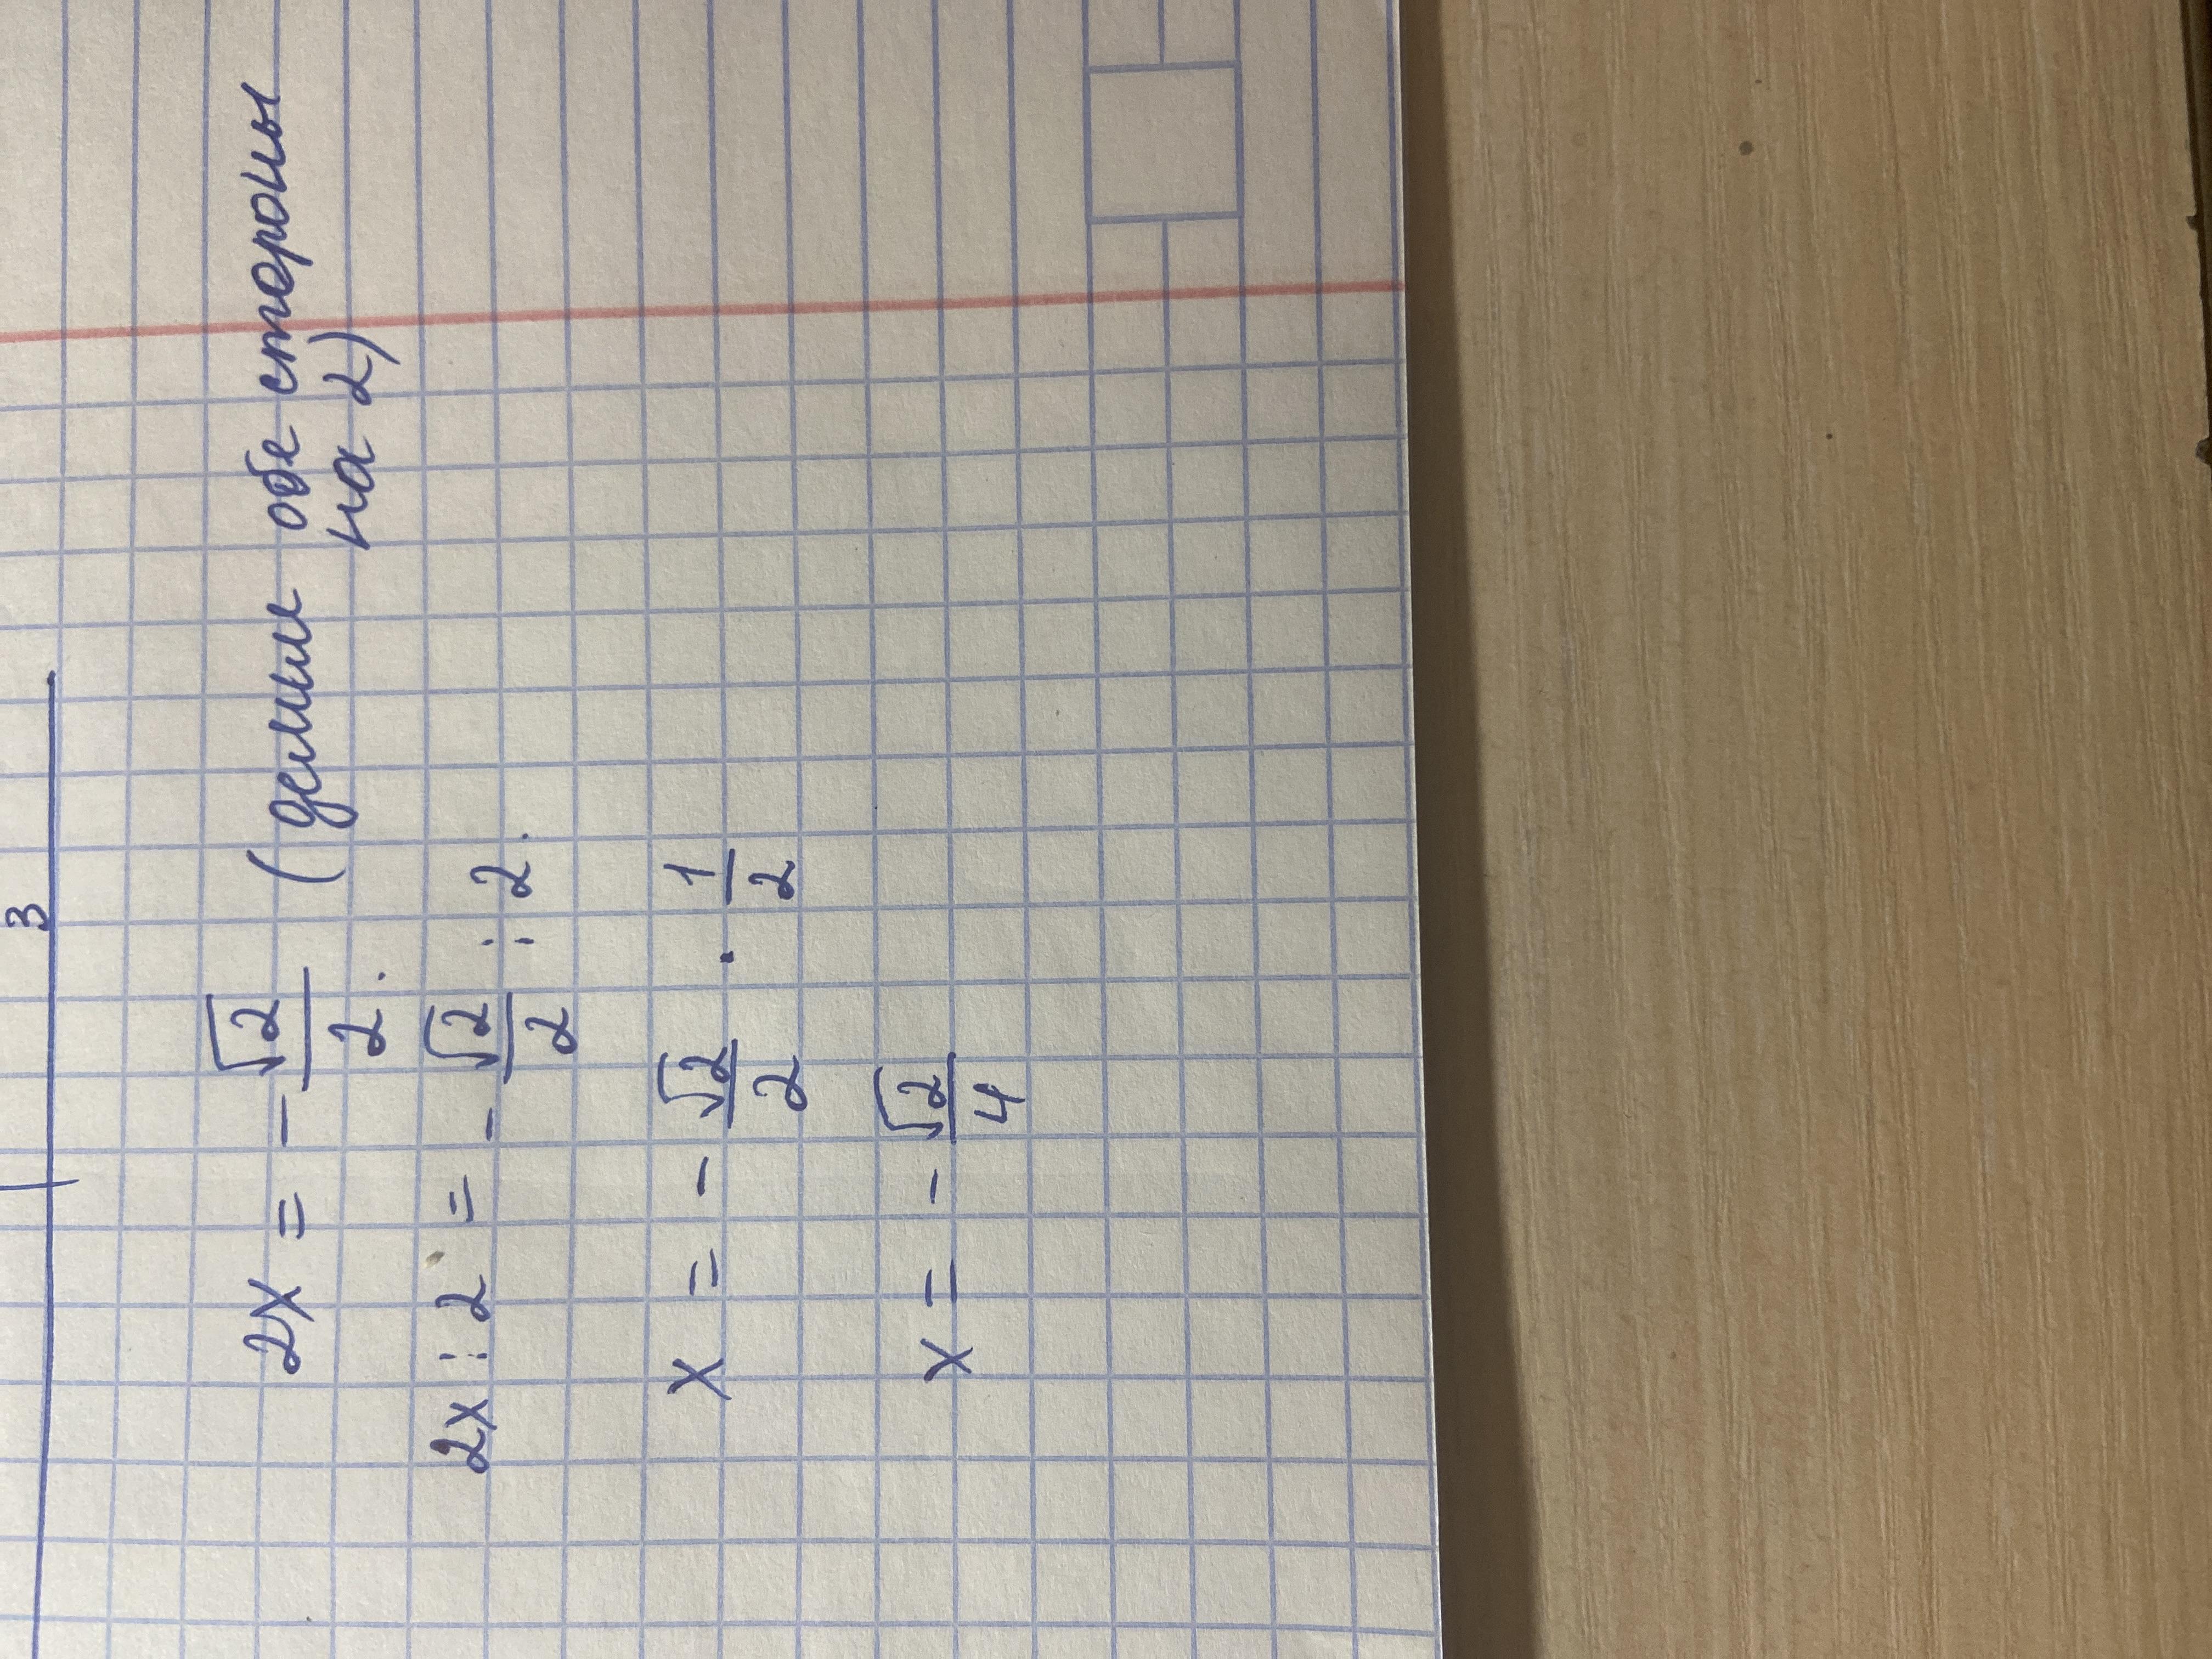 3
2x = - √2/2. (делим обе стороны
на 2)
2x : 2 = - √2/2 : 2.
x = - √2/2 · 1/2
x = - √2/4